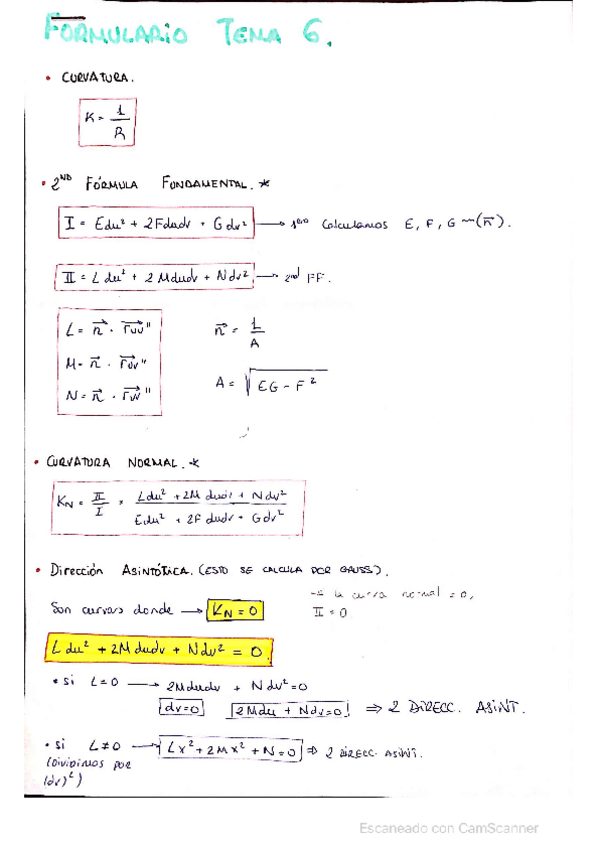 FORMULARIO TEMA 6.
• CURVATURA.
K = 1/R
• 2ND FÓRMULA FUNDAMENTAL. *
I = Edu² + 2Fdudv + Gdv² → 1ero Calculamos E, F, G ~ (n⃗).
II = Ldu² + 2Mdudv + Ndv² → 2nd FF.
L = n⃗ · r⃗uu'' n⃗ = 1/A
M = n⃗ · r⃗uv''
N = n⃗ · r⃗vv'' A = √(EG - F²)
• CURVATURA NORMAL. *
KN = II/I = (Ldu² + 2M dudv + Ndv²)/(Edu² + 2F dudv + Gdv²)
• Dirección ASINTÓTICA. (ESTO SE CALCULA POR GAUSS).
Son curvas donde → KN = 0
curva normal = 0,
II = 0
Ldu² + 2Mdudv + Ndv² = 0.
• si L=0 → 2Mdudv + Ndv²=0
dv=0 2Mdu + Ndv=0 ⇒ 2 DIRECC. ASINT.
• si L≠0 → Lx²+2Mx²+N=0 ⇒ 2 DIRECC. ASINT.
(DIVIDIMOS POR
(dv)²)
Escaneado con CamScanner